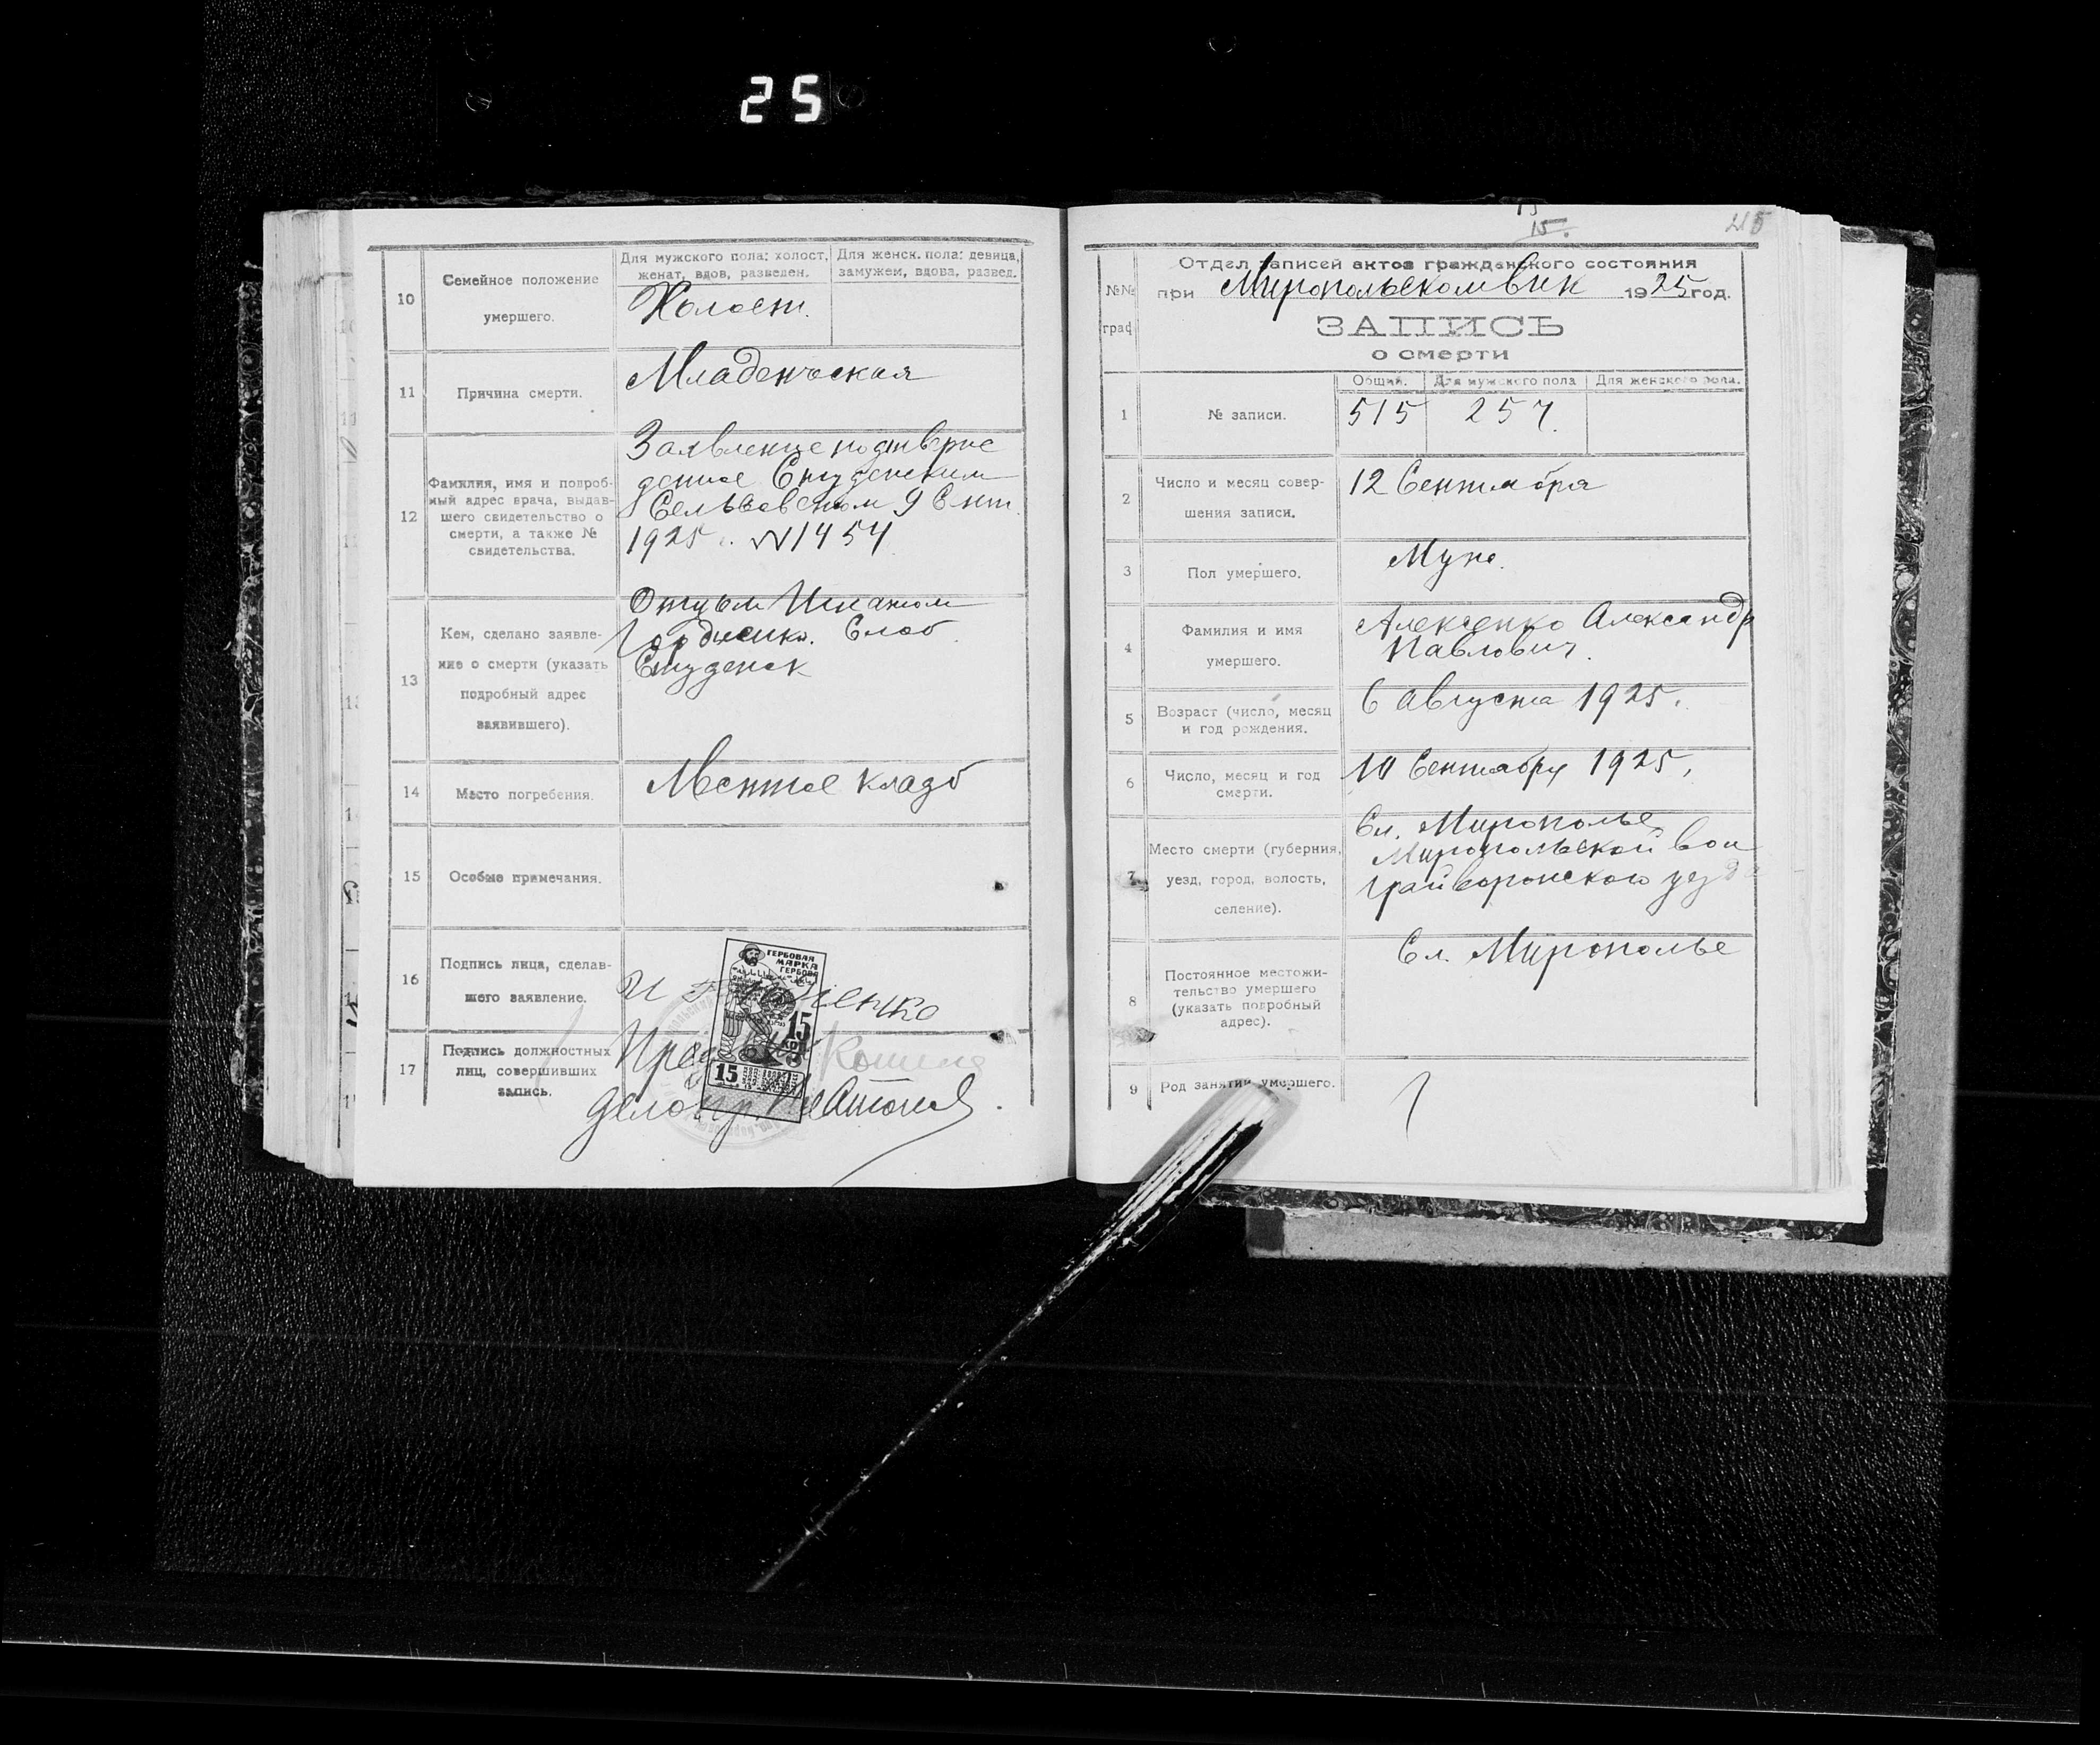 25
10
Семейное положение
умершего.
Для мужского пола: холост,
женат, вдов, разведен.
Для женск. пола: девица,
замужем, вдова, развед.
Холост.
11
Причина смерти.
Младенческая
12
Фамилия, имя и подроб-
ный адрес врача, выдав-
шего свидетельство о
смерти, а также №
свидетельства.
Заявление подтверж
денное Студенским
Сельсоветом 9 Сент.
1925 г. № 1454
13
Кем, сделано заявле-
ние о смерти (указать
подробный адрес
заявившего).
Отцом Игнатом
Гордиенко. Слоб.
Студенок
14
Место погребения.
Местное кладб
15
Особые примечания.
16
Подпись лица, сделав-
шего заявление.
ГЕРБОВАЯ
МАРКА
15
КОП.
15
17
Подпись должностных
лиц, совершивших
запись.
Пред
делопр.
15.
215
№№
граф
Отдел записей актов гражданского состояния
при Миропольском Вик 1925 год.
ЗАПИСЬ
о смерти
1
№ записи.
Общий.
Для мужского пола
Для женского пола.
515
257.
2
Число и месяц совер-
шения записи.
12 Сентября
3
Пол умершего.
Муж.
4
Фамилия и имя
умершего.
Алексенко Александр
Павлович.
5
Возраст (число, месяц
и год рождения.
6 Августа 1925.
6
Число, месяц и год
смерти.
10 Сентября 1925.
7
Место смерти (губерния,
уезд, город, волость,
селение).
Сл. Мирополье
Миропольской вол
Грайворонского уезда
8
Постоянное местожи-
тельство умершего
(указать подробный
адрес).
Сл. Мирополье
9
Род занятий умершего.